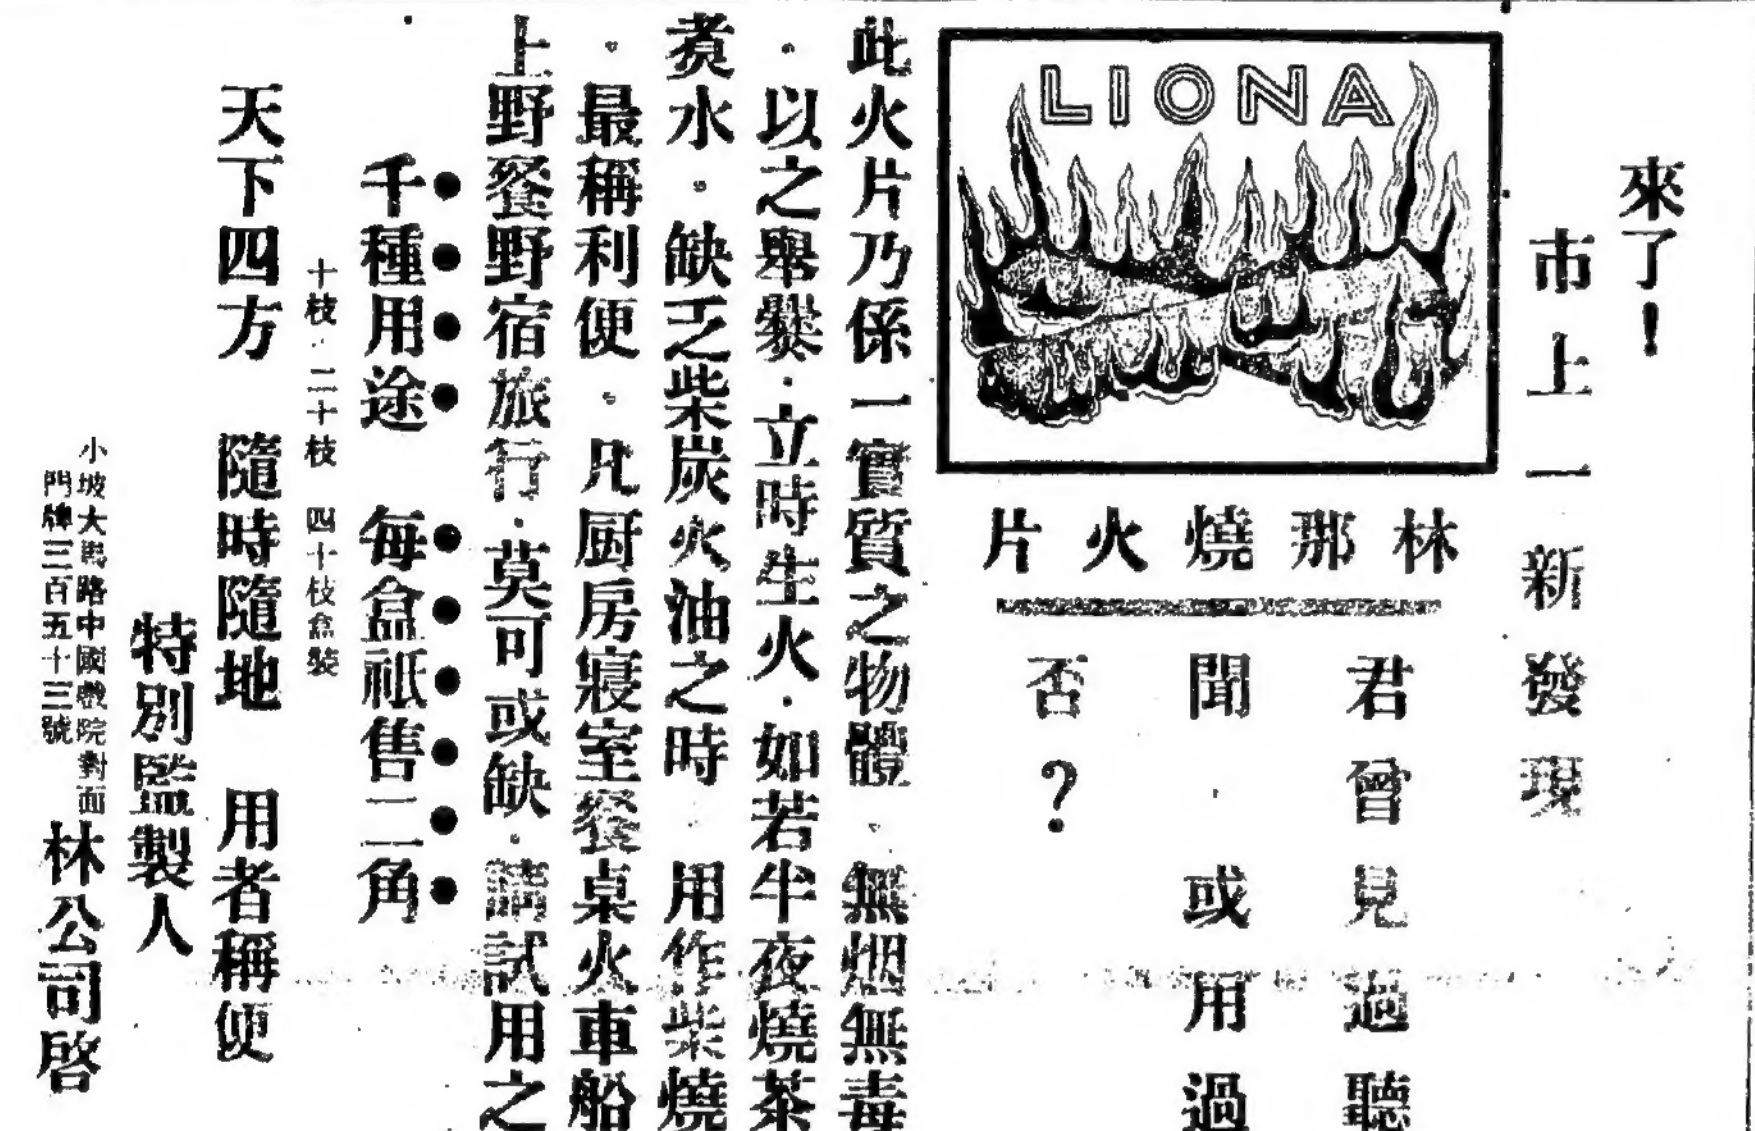 來了！
市上一新發現
LIONA
林那燒火片
君曾見過聽
聞．或用過
否？
此火片乃係一實質之物體。無烟無毒
．以之舉爨．立時生火．如若半夜燒茶
煑水。缺乏柴炭火油之時．用作柴燒
。最稱利便。凡厨房寢室餐桌火車船
上野餐野宿旅行．莫可或缺．請試用之
．
千種用途　每盒祇售二角
十枝．二十枝　四十枝盒裝
天下四方　隨時隨地　用者稱便
特別監製人
小坡大馬路中國戲院對面
門牌三百五十三號
林公司啓